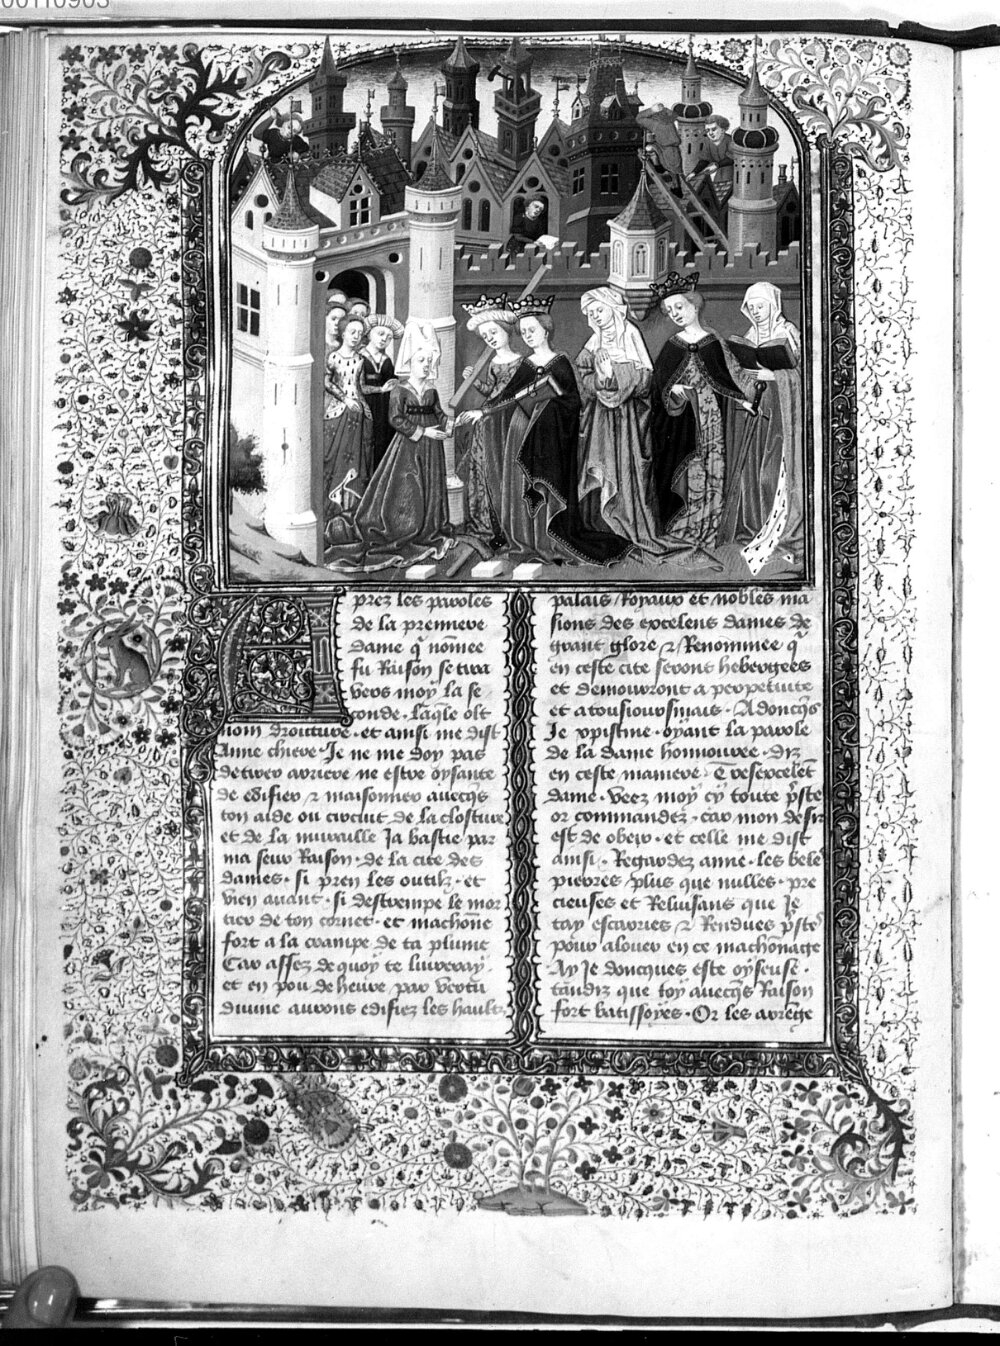 00110903
Aprez les paroles
de la premiere
dame q̄ nōmee
fu Raison se tira
vers moy la se
conde · laq̄le ost
nom droitture · et ainsi me dist
Anne chiere · Je ne me doy pas
detirer arriere ne estre oysante
de edifier ⁊ maisonner avecq̄s
ton aide ou circuit de la closture
et de la muraille Ja bastie par
ma seur Raison · de la cite des
dames · si pren les outilz · et
vien avant · si destrempe le mor
tier de ton cornet · et machōne
fort a la trampe de ta plume
Car assez de quoy te liureray
et en pou de heure par vertu
diuine aurons edifiez les haulx
palais Royaux et nobles ma
sions des excelens dames de
grant glore ⁊ Renommee q̄
en ceste cite seront hebergees
et demouront a perpetuite
et a tousioursmais · Adoncq̄s
Je xpistine · oyant la parole
de la dame honnouree · diz
en ceste maniere · Tresexcelēt
dame · veez moy cy toute p̄ste
or commandez · car mon desir
est de obeir · et celle me dist
ainsi · Regardez amie · les bele
pierres plus que nulles · pre
cieuses et Reluisans que Je
tay escarries ⁊ Rendues p̄ste
pour alouer en ce machōnage
Ay Je doncques este oyseuse ·
tandiz que toy avecq̄s Raison
fort batissoyes · Or les arrege